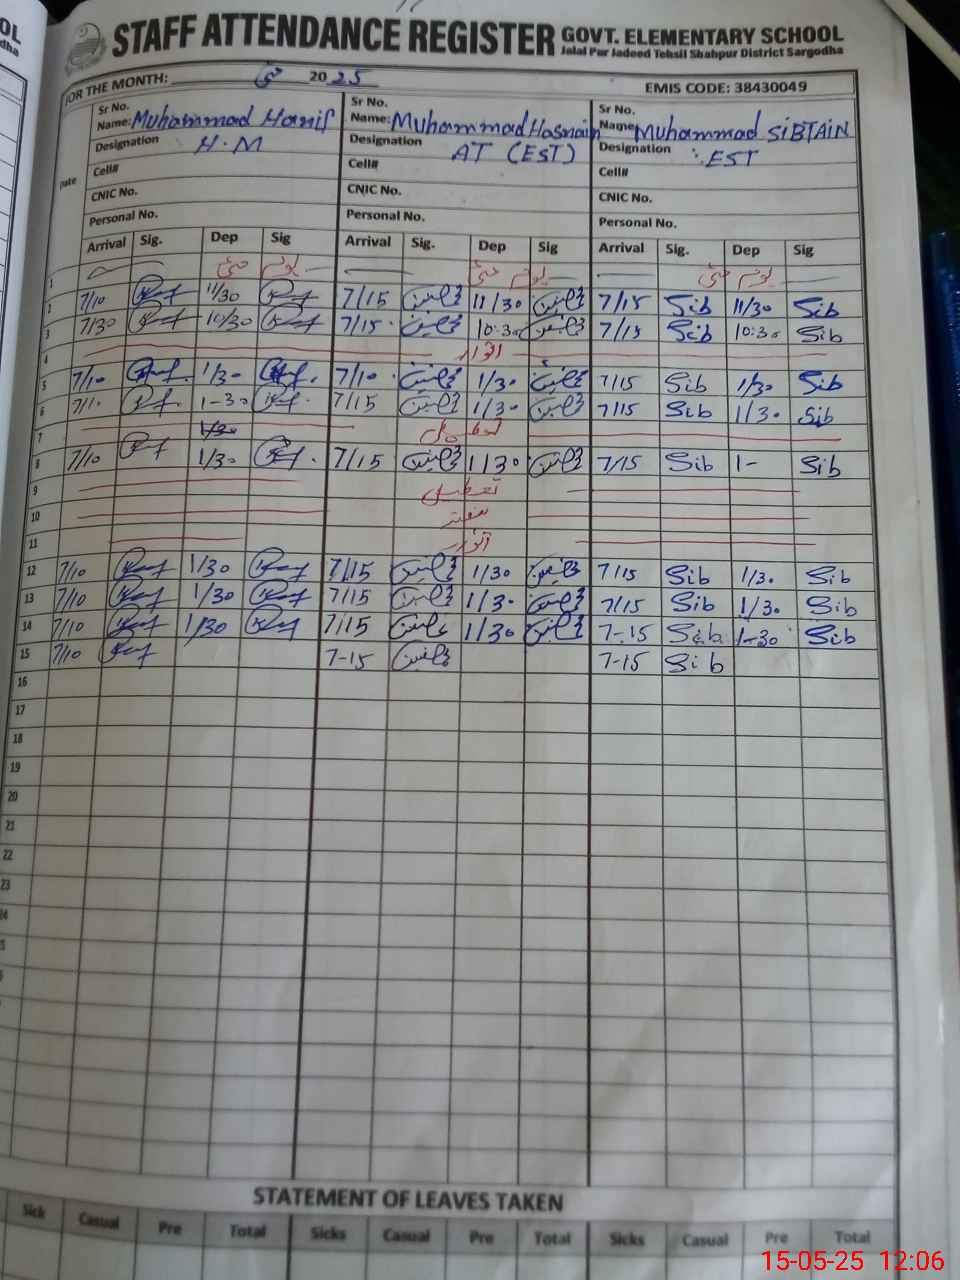 STAFF ATTENDANCE REGISTER GOVT. ELEMENTARY SCHOOL
Jalal Pur Jadeed Tehsil Shahpur District Sargodha
FOR THE MONTH: مئی 2025 EMIS CODE: 38430049
Date
Sr No. Sr No. Sr No.
Name: Muhammad Hanif Name: Muhammad Hasnain Name: Muhammad SIBTAIN
Designation H.M Designation AT (EST) Designation EST
Cell# Cell# Cell#
CNIC No. CNIC No. CNIC No.
Personal No. Personal No. Personal No.
Arrival Sig. Dep Sig Arrival Sig. Dep Sig Arrival Sig. Dep Sig
1 یوم مئی یوم مئی یوم مئی
2 7/10 11/30 7/15 11/30 7/15 Sib 11/30 Sib
3 7/30 10/30 7/15 10:30 7/15 Sib 10:30 Sib
4 اتوار
5 7/10 1/30 7/10 1/30 7/15 Sib 1/30 Sib
6 7/10 1-30 7/15 1/30 7/15 Sib 1/30 Sib
7 1/30 تعطیل
8 7/10 1/30 7/15 1/30 7/15 Sib 1- Sib
9 تعطیل
10 ہفتہ
11 اتوار
12 7/10 1/30 7/15 1/30 7/15 Sib 1/30 Sib
13 7/10 1/30 7/15 1/30 7/15 Sib 1/30 Sib
14 7/10 1/30 7/15 1/30 7-15 Sib 1-30 Sib
15 7/10 7-15 7-15 Sib
16
17
18
19
20
21
22
23
STATEMENT OF LEAVES TAKEN
Sick Casual Pre Total Sicks Casual Pre Total Sicks Casual Pre Total
15-05-25 12:06